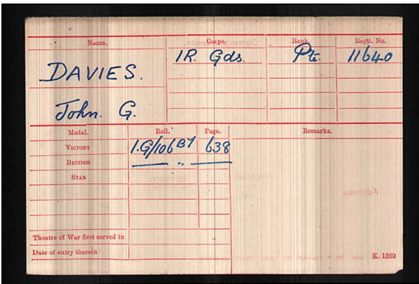 Name. Corps. Rank. Regtl. No.
DAVIES. IR. Gds. Pte. 11640
John. G.
Medal. Roll. Page. Remarks.
VICTORY I.G/106B1 638
BRITISH — „ —
STAR
Theatre of War first served in
Date of entry therein K. 1380